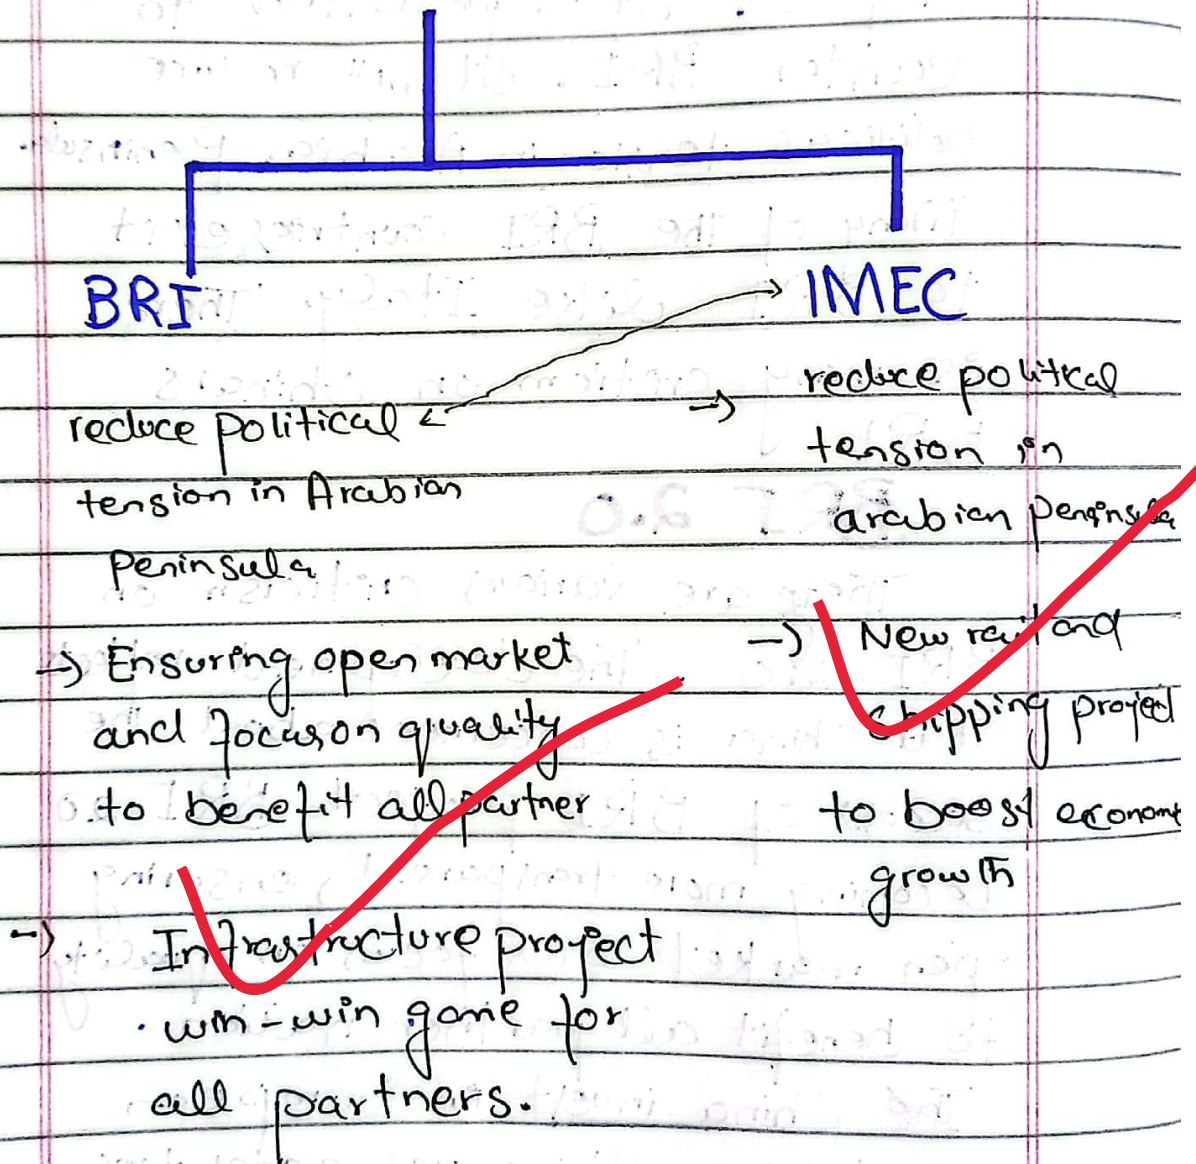 BRI
reduce political
tension in Arabian
Peninsula
→ Ensuring open market
and focus on quality
to benefit all partner
→ Infrastructure project
win-win game for
all partners.
IMEC
→ reduce political
tension in
arabian peninsula
→ New rail and
shipping project
to boost econom
growth